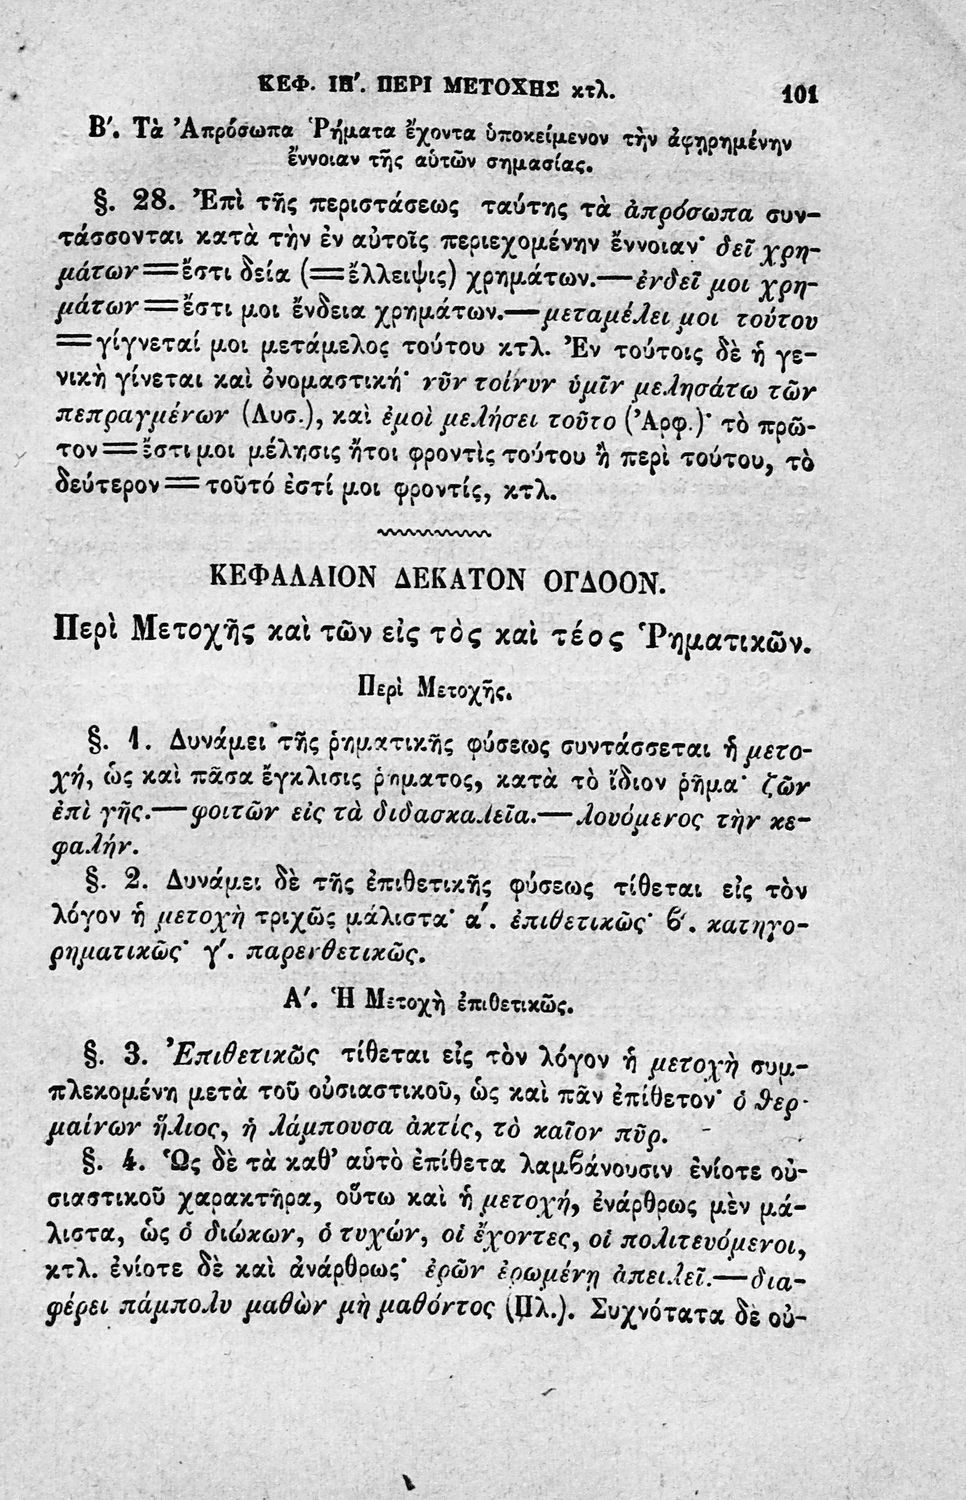 ΚΕΦ. ΙΗ'. ΠΕΡΙ ΜΕΤΟΧΗΣ κτλ. 101
Β'. Τὰ Ἀπρόσωπα Ῥήματα ἔχοντα ὑποκείμενον τὴν ἀφῃρημένην
ἔννοιαν τῆς αὑτῶν σημασίας.
§. 28. Ἐπὶ τῆς περιστάσεως ταύτης τὰ ἀπρόσωπα συν-
τάσσονται κατὰ τὴν ἐν αὐτοῖς περιεχομένην ἔννοιαν· δεῖ χρη-
μάτων=ἔστι δεία (=ἔλλειψις) χρημάτων.—ἐνδεῖ μοι χρη-
μάτων=ἔστι μοι ἔνδεια χρημάτων.—μεταμέλει μοι τούτου
=γίγνεταί μοι μετάμελος τούτου κτλ. Ἐν τούτοις δὲ ἡ γε-
νικὴ γίνεται καὶ ὀνομαστική· νῦν τοίνυν ὑμῖν μελησάτω τῶν
πεπραγμένων (Λυσ.), καὶ ἐμοὶ μελήσει τοῦτο (Ἀρφ.)· τὸ πρῶ-
τον=ἔστι μοι μέλησις ἤτοι φροντὶς τούτου ἢ περὶ τούτου, τὸ
δεύτερον=τοῦτό ἐστί μοι φροντίς, κτλ.
ΚΕΦΑΛΑΙΟΝ ΔΕΚΑΤΟΝ ΟΓΔΟΟΝ.
Περὶ Μετοχῆς καὶ τῶν εἰς τὸς καὶ τέος Ῥηματικῶν.
Περὶ Μετοχῆς.
§. 1. Δυνάμει τῆς ῥηματικῆς φύσεως συντάσσεται ἡ μετο-
χή, ὡς καὶ πᾶσα ἔγκλισις ῥήματος, κατὰ τὸ ἴδιον ῥῆμα· ζῶν
ἐπὶ γῆς.—φοιτῶν εἰς τὰ διδασκαλεῖα.—λουόμενος τὴν κε-
φαλήν.
§. 2. Δυνάμει δὲ τῆς ἐπιθετικῆς φύσεως τίθεται εἰς τὸν
λόγον ἡ μετοχὴ τριχῶς μάλιστα· α'. ἐπιθετικῶς· ϐ'. κατηγο-
ρηματικῶς· γ'. παρενθετικῶς.
Α'. Ἡ Μετοχὴ ἐπιθετικῶς.
§. 3. Ἐπιθετικῶς τίθεται εἰς τὸν λόγον ἡ μετοχὴ συμ-
πλεκομένη μετὰ τοῦ οὐσιαστικοῦ, ὡς καὶ πᾶν ἐπίθετον· ὁ θερ-
μαίνων ἥλιος, ἡ λάμπουσα ἀκτίς, τὸ καῖον πῦρ.
§. 4. Ὡς δὲ τὰ καθ' αὑτὸ ἐπίθετα λαμϐάνουσιν ἐνίοτε οὐ-
σιαστικοῦ χαρακτῆρα, οὕτω καὶ ἡ μετοχή, ἐνάρθρως μὲν μά-
λιστα, ὡς ὁ διώκων, ὁ τυχών, οἱ ἔχοντες, οἱ πολιτευόμενοι,
κτλ. ἐνίοτε δὲ καὶ ἀνάρθρως· ἐρῶν ἐρωμένῃ ἀπειλεῖ.—δια-
φέρει πάμπολυ μαθὼν μὴ μαθόντος (Πλ.). Συχνότατα δὲ οὐ-